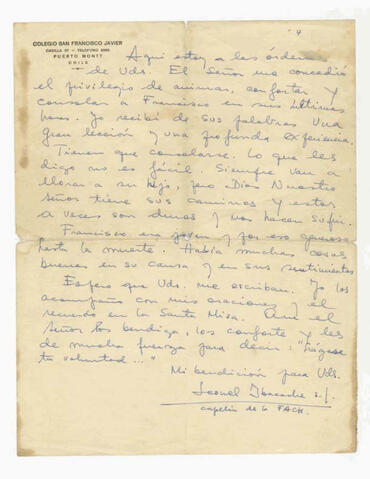 4
COLEGIO SAN FRANCISCO JAVIER
CASILLA 57 - TELEFONO
PUERTO MONTT
CHILE
Aqui estoy a las órdenes
de Uds. El Señor me concedió
el privilegio de animar, confortar y
consolar a Francisco en sus últimas
horas. Yo recibí de sus palabras una
gran lección y una profunda experiencia.
Tienen que consolarse. Lo que les
digo no es fácil. Siempre van a
llorar a su hijo, pero Dios Nuestro
Señor tiene sus caminos y estos
a veces son duros y nos hacen sufrir.
Francisco era joven y por eso generoso
hasta la muerte. Había muchas cosas
buenas en su causa y en sus sentimientos
Espero que Uds. me escriban. Yo los
acompaño con mis oraciones y el
recuerdo en la Santa Misa. Que el
Señor los bendiga, los conforte y les
dé mucha fuerza para decir: "Hágase
tu voluntad..."
Mi bendición para Uds.
Leonel Ibacache s.j.
capellán de la FACH.